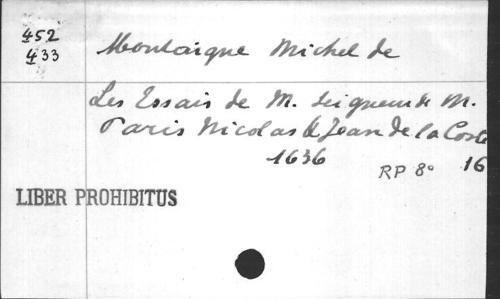 452
433
Montaigne Michel de
Les Essais de M. seigneur de M.
Paris Nicolas & Jean de la Coste
1636 RP 8° 16
LIBER PROHIBITUS